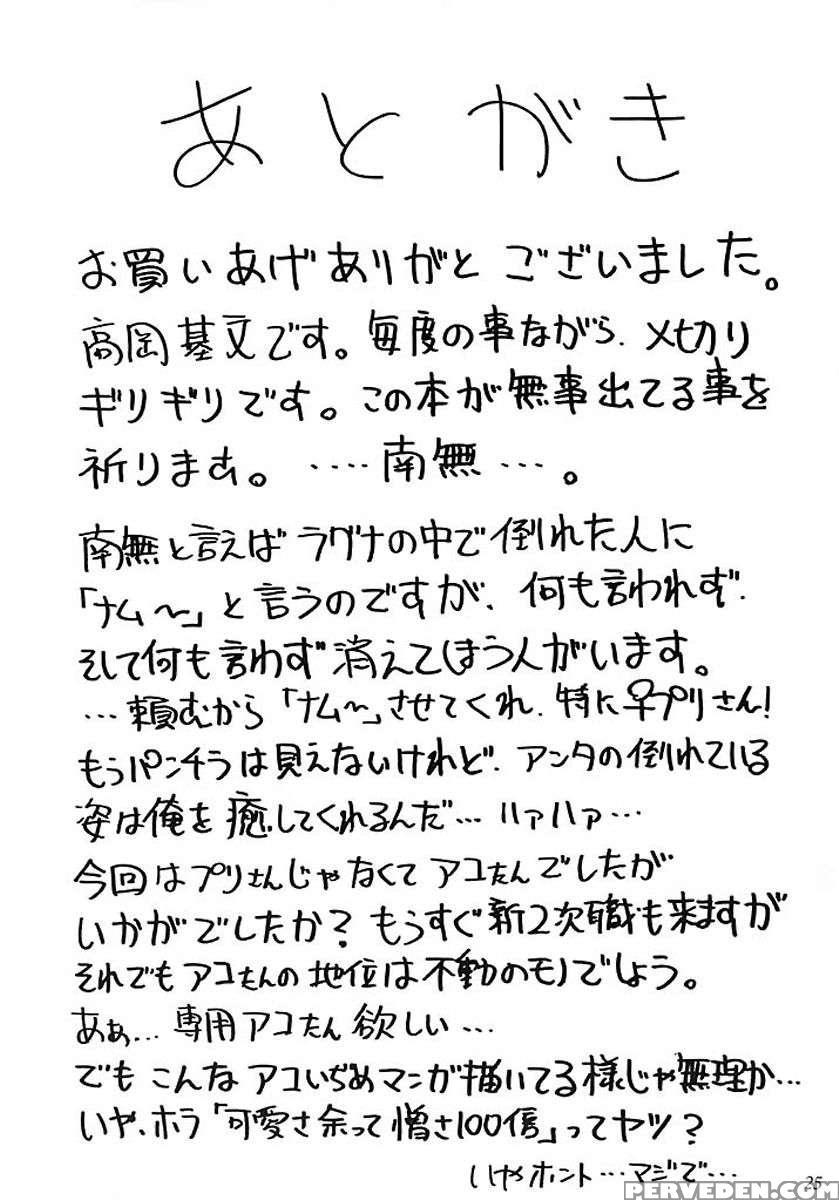 あとがき
お買いあげありがとございました。
高岡基文です。毎度の事ながら、〆切り
ギリギリです。この本が無事出てる事を
祈ります。‥‥南無…。
南無と言えばラグナの中で倒れた人に
「ナム～」と言うのですが、何も言われず、
そして何も言わず消えてしまう人がいます。
…頼むから「ナム～」させてくれ、特に♀プリさん!
もうパンチラは見えないけれど、アンタの倒れている
姿は俺を癒してくれるんだ…ハァハァ…
今回はプリさんじゃなくてアコたんでしたが
いかがでしたか?もうすぐ新2次職も来ますが
それでもアコたんの地位は不動のモノでしょう。
あぁ…専用アコたん欲しい…
でもこんなアコいぢめマンガ描いてる様じゃ無理か…
いや、ホラ「可愛さ余って憎さ100倍」ってヤツ?
いやホント…マジで…
25
PERVEDEN.COM
PERVEDEN.COM